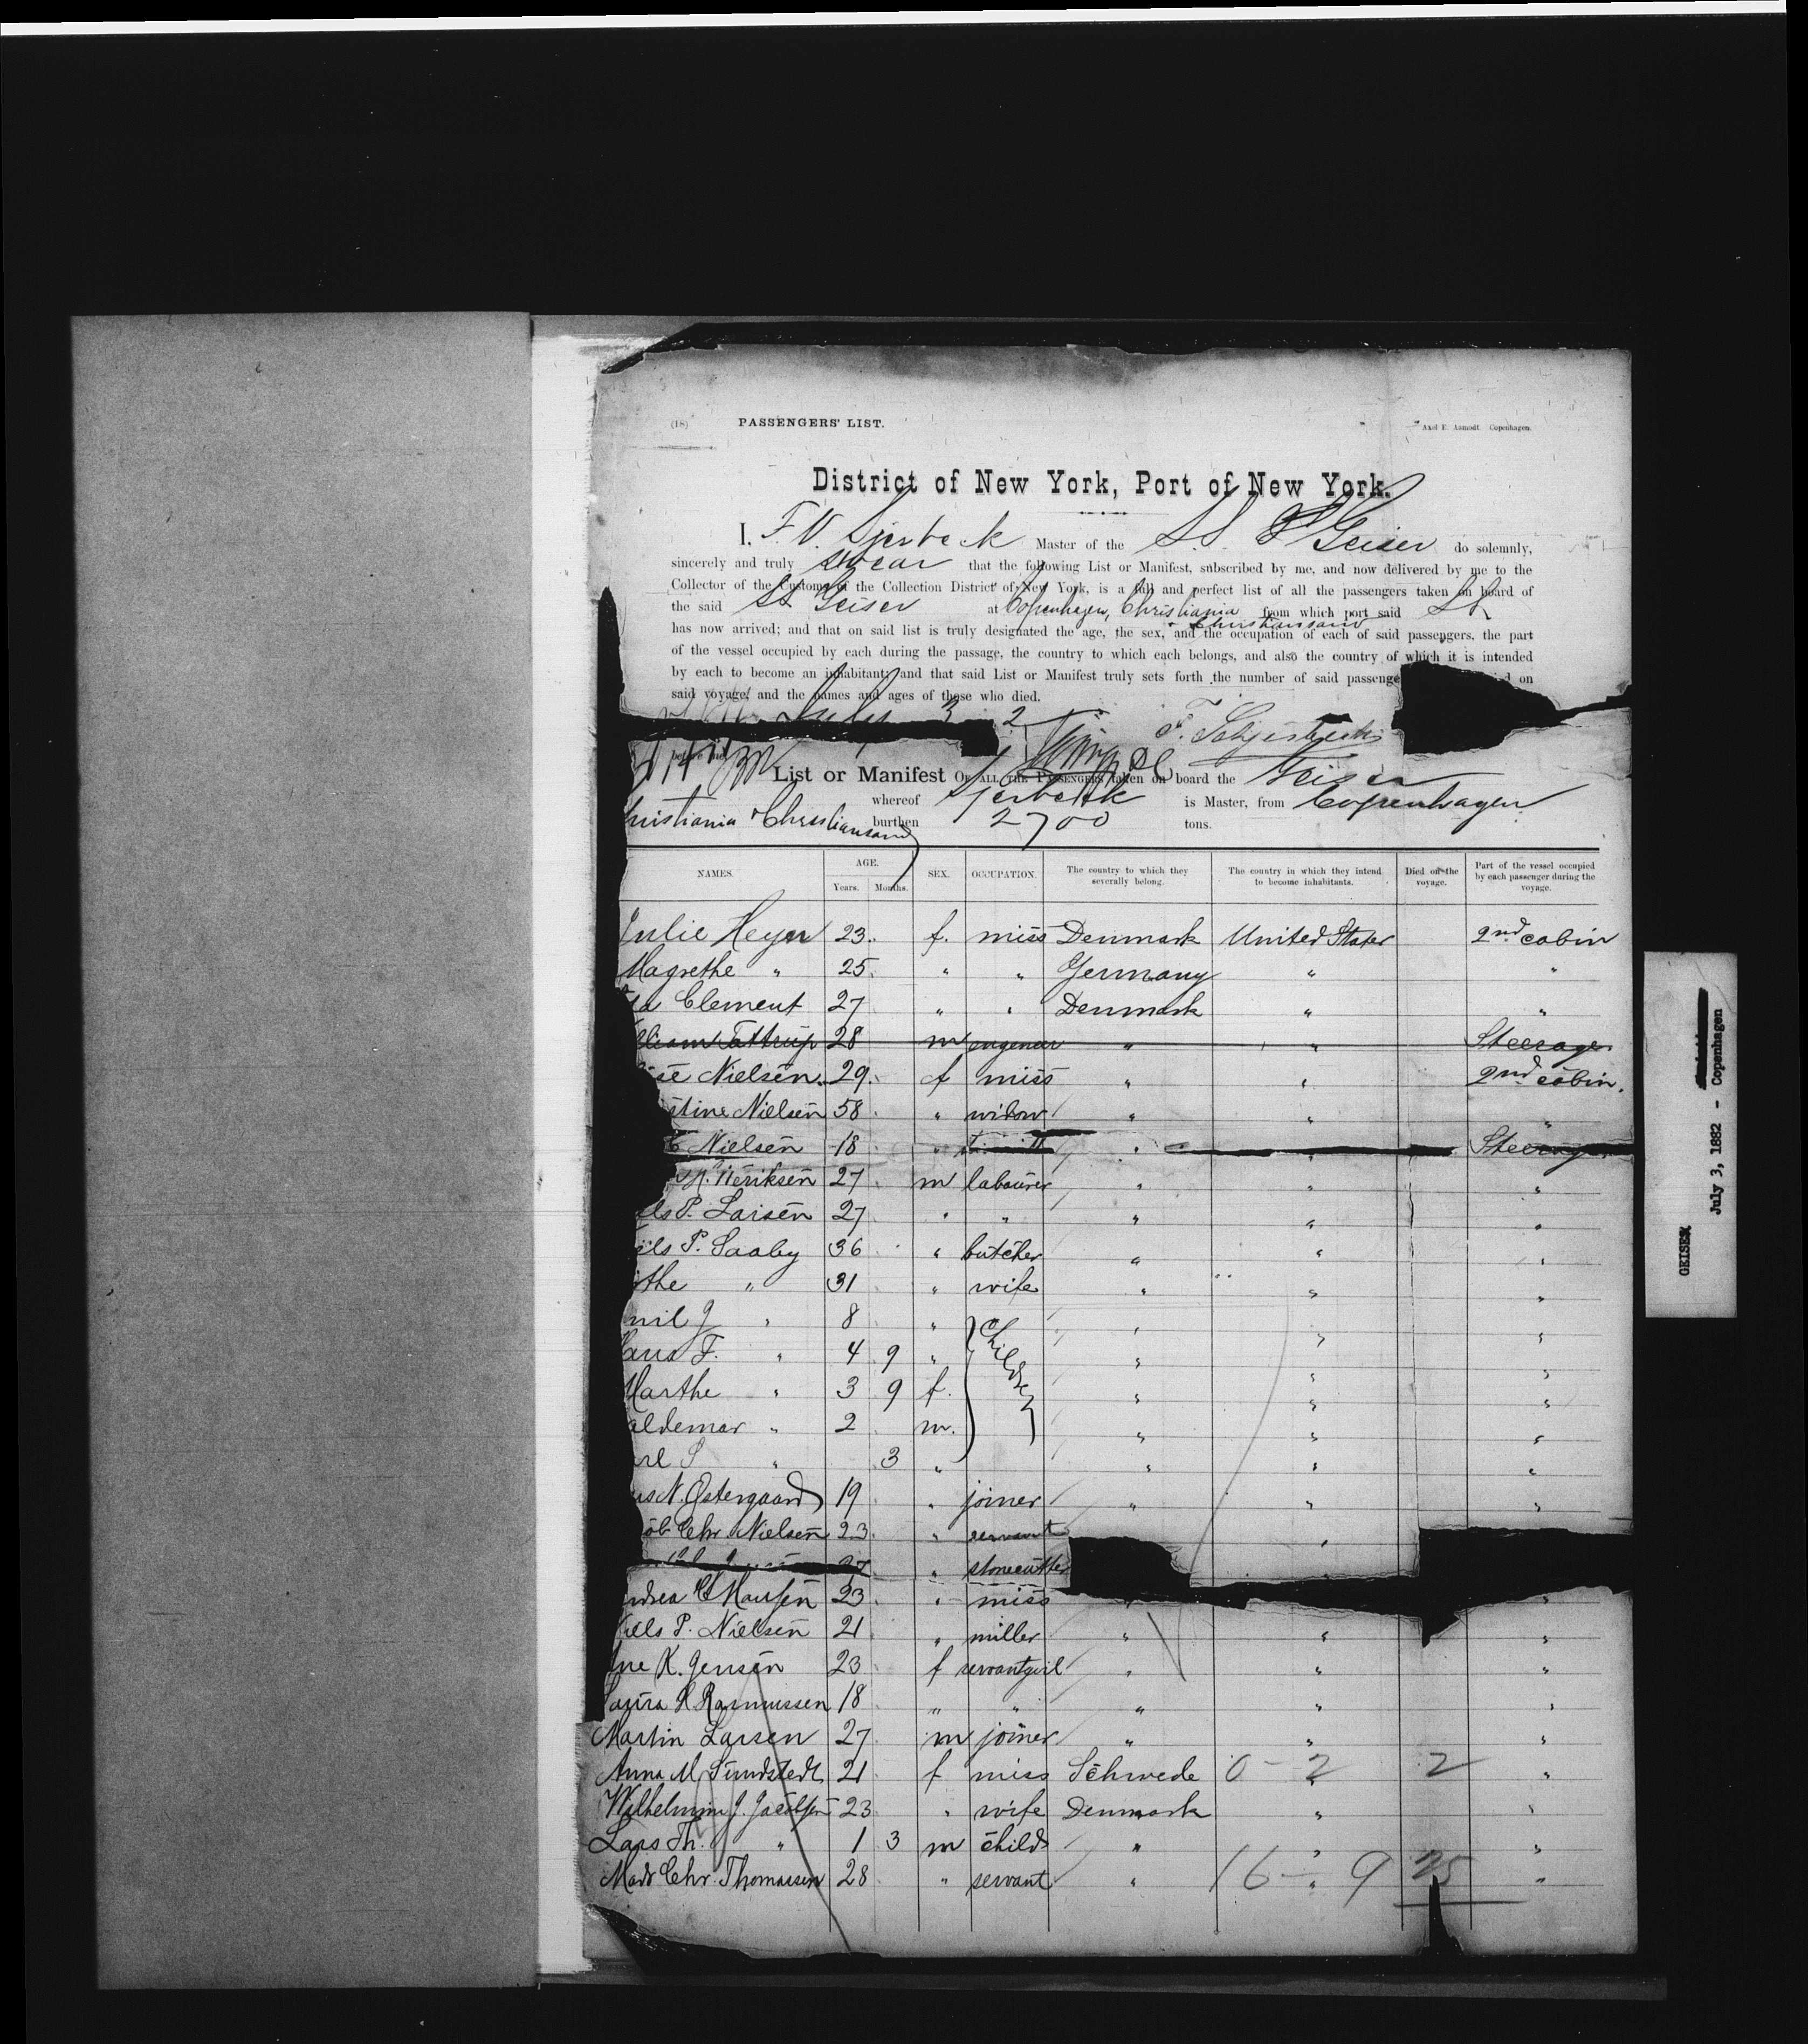 (18) PASSENGERS' LIST. Axel E. Aamodt. Copenhagen.
District of New York, Port of New York.
I, F V. Master of the S. S. Geiser do solemnly,
sincerely and truly swear that the following List or Manifest, subscribed by me, and now delivered by me to the
Collector of the Customs of the Collection District of New York, is a full and perfect list of all the passengers taken on board of
the said SS Geiser at Copenhagen, Christiania + Christiansand from which port said SS
has now arrived; and that on said list is truly designated the age, the sex, and the occupation of each of said passengers, the part
of the vessel occupied by each during the passage, the country to which each belongs, and also the country of which it is intended
by each to become an inhabitant; and that said List or Manifest truly sets forth the number of said passenge on
said voyage, and the names and ages of those who died.
July 3 2
before me
List or Manifest OF ALL THE PASSENGERS taken on board the Geiser
whereof is Master, from Copenhagen
ristiania + Christiansand burthen 2700 tons.
NAMES. AGE. Years. Months. SEX. OCCUPATION. The country to which they severally belong. The country in which they intend to become inhabitants. Died on the voyage. Part of the vessel occupied by each passenger during the voyage.
Julie Heyer 23 f. miss Denmark United States 2nd cabin
Magrethe " 25 " " Germany " "
a Clement 27 " " Denmark " "
lliam Tattrup 28 m engeneer " " Steerage
ise Nielsen 29 f miss " " 2nd cabin.
stine Nielsen 58 " widow " " "
C Nielsen 18 " " " Steerage
Heriksen 27 m labourer " " "
ls P. Larsen 27 " " " " "
els P. Saaby 36 " butcher " " "
the " 31 " wife " " "
mil J " 8 " children " " "
Hans F. " 4 9 " " " "
Marthe " 3 9 f. " " "
aldemar " 2 m. " " "
arl S " 3 " " " "
us N. Østergaard 19 " joiner " " "
ob Chr. Nielsen 23 " servant "
27 " stonecutter "
ndrea C Hansen 23 " miss " "
Niels P. Nielsen 21 " miller " " "
ne K. Jensen 23 f servantgirl " " "
Laura K Rasmussen 18 " " " " "
Martin Larsen 27 m joiner " " "
Anna M. Sundstedt 21 f miss Schwede " 0 - 2 2 "
Wilhelmine J. Jacobsen 23 " wife Denmark " "
Lars Th. " 1 3 m child " " "
Mads Chr. Thomassen 28 " servant " " 16 - 9 25 "
GEISER
July 3, 1882 - Copenhagen